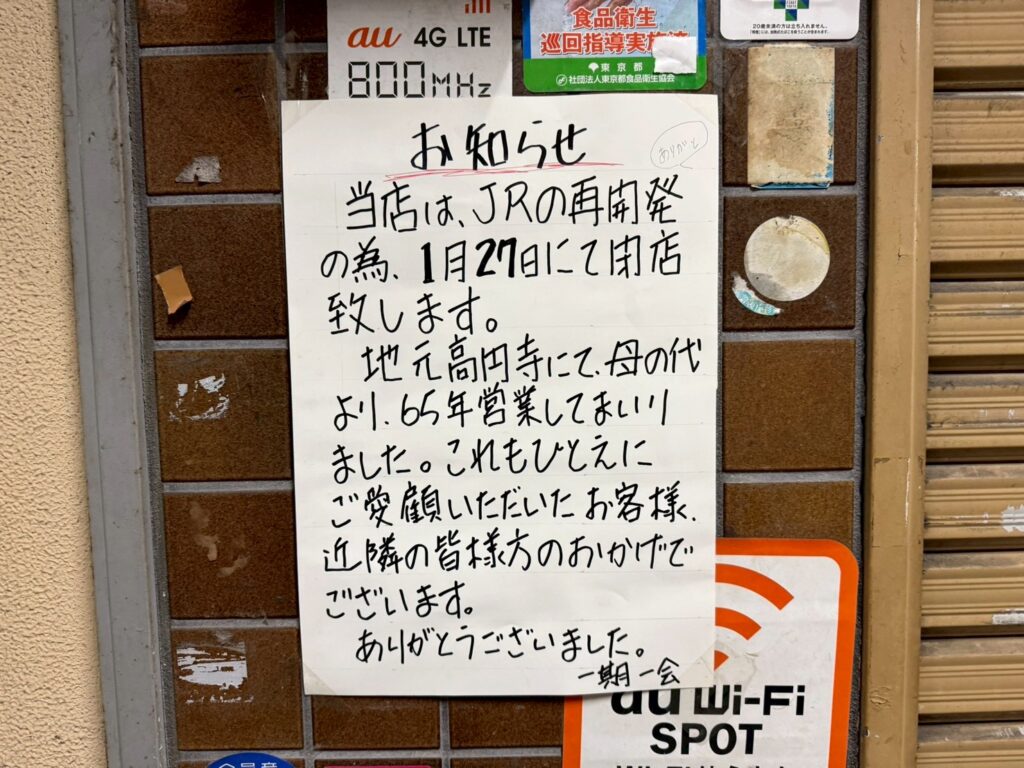 au 4G LTE
800MHz
食品衛生
巡回指導実施済
東京都
社団法人東京都食品衛生協会
20歳未満の方は立ち入れません。
お知らせ
ありがと
当店は、JRの再開発
の為、1月27日にて閉店
致します。
地元高円寺にて、母の代
より、65年営業してまいり
ました。これもひとえに
ご愛顧いただいたお客様、
近隣の皆様方のおかげで
ございます。
ありがとうございました。
一期一会
au Wi-Fi
SPOT